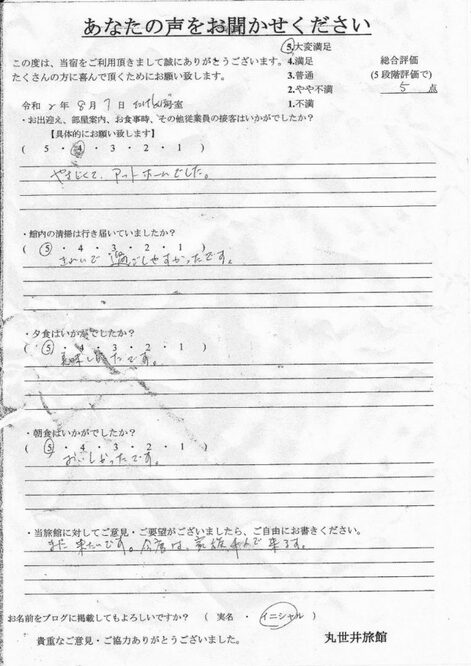 あなたの声をお聞かせください
この度は、当宿をご利用頂きまして誠にありがとうございます。
たくさんの方に喜んで頂くためにお願い致します。
5.大変満足
4.満足
3.普通
2.やや不満
1.不満
総合評価
(5段階評価で)
5 点
令和 2年 8月 7日 号室
・お出迎え、部屋案内、お食事時、その他従業員の接客はいかがでしたか?
【具体的にお願い致します】
( 5 ・ 4 ・ 3 ・ 2 ・ 1 )
やさしくて、アットホームでした。
・館内の清掃は行き届いていましたか?
( 5 ・ 4 ・ 3 ・ 2 ・ 1 )
きれいで過ごしやすかったです。
・夕食はいかがでしたか?
( 5 ・ 4 ・ 3 ・ 2 ・ 1 )
美味しかったです。
・朝食はいかがでしたか?
( 5 ・ 4 ・ 3 ・ 2 ・ 1 )
おいしかったです。
・当旅館に対してご意見・ご要望がございましたら、ご自由にお書きください。
また来たいです。今度は、家族みんで来ます。
お名前をブログに掲載してもよろしいですか? ( 実名 ・ イニシャル )
貴重なご意見・ご協力ありがとうございました。
丸世井旅館